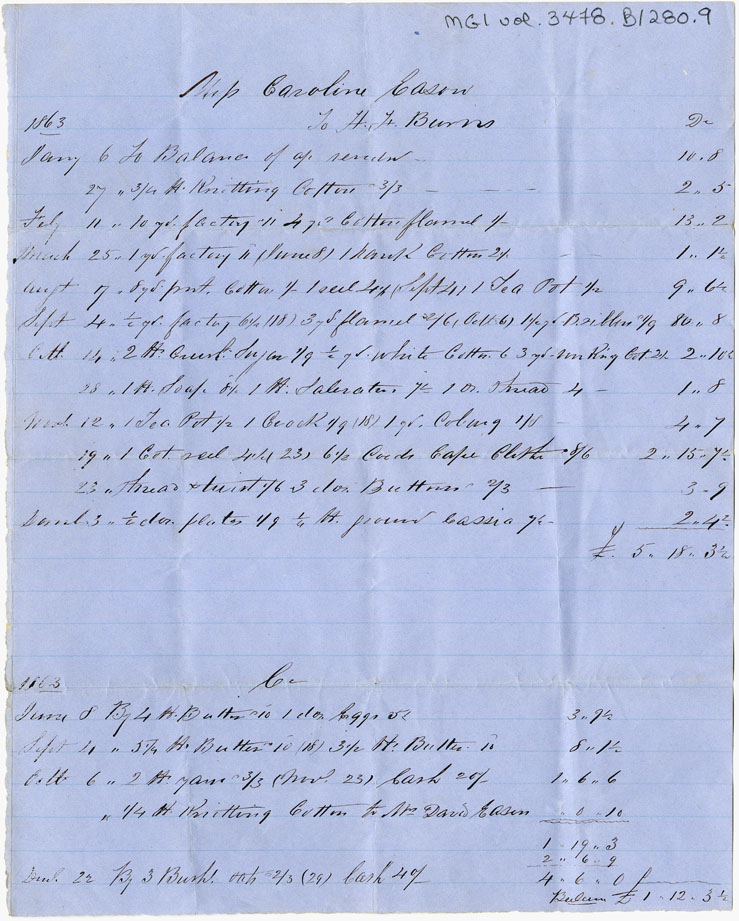 MG1 vol. 3478. B/280.9
Miss Caroline Eason
1863 To H. H. Burns Dr
Jany 6 To Balance of a/c rendr — 10 " 8
27 " 3/4 lb. Knitting Cotton 3/3 — — — 2 " 5
Feby 11 " 10 yd. factory 11 4 yd Cotton flannel 1/- 13 " 2
March 25 " 1 yd. factory 11 (June 8) 1 hank Cotton 2½ — 1 " 1½
Augt 17 " 8 yd prnt. Cotton 1/- 1 reel 4½ (Sept 4) 1 Tea Pot 1/2 9 " 6½
Sept 4 " ½ yd. factory (18) 3 yd flannel 2/6 (Oct 6) 8 " 8
Oct. 14 " 2 lb. Crush. Sugar ½ yd. white Cotton 6 3 yd. 2 " 10
28 " 1 lb. Soap 1 lb. Saleratus 1 dr. thread 4 — 1 " 8
12 " 1 Tea Pot 1/2 1 Crock 1/9 (18) 1 yd. Coburg 1/8 — 4 " 7
19 " 1 Cot. reel 4½ (23) 6½ Cape Cloth 8/6 2 " 15 " 7½
23 " thread & twist 1/6 3 doz Buttons 2/3 — 3 " 9
3 " ½ doz. plates 1/9 ¼ lb. ground Cassia 7½ 2 " 4½
£ 5 " 18 " 3½
1863 Cr
June 8 By 4 lb Butter 10 1 doz Eggs 5½ 3 " 9½
Sept 4 " 5¾ lb Butter 10 (18) 3½ lb. Butter 10 8 " 1½
Octb 6 " 2 lb yarn 3/3 (Nov. 23) Cash 20/ 1 " 6 " 6
" 1/4 lb Knitting Cotton to Mrs David Eason " 0 " 10
1 " 19 " 3
2 " 6 " 9
22 By 3 Bushl. oats 2/3 (29) Cash 40/ 4 " 6 " 0
Balance £ 1 " 12 " 3½